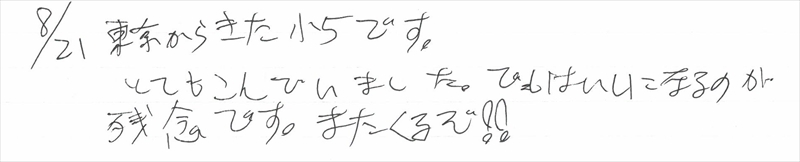 8/21 東京からきた小5です。
とてもこんでいました。びわはいりになるのが
残念です。またくるぞ!!